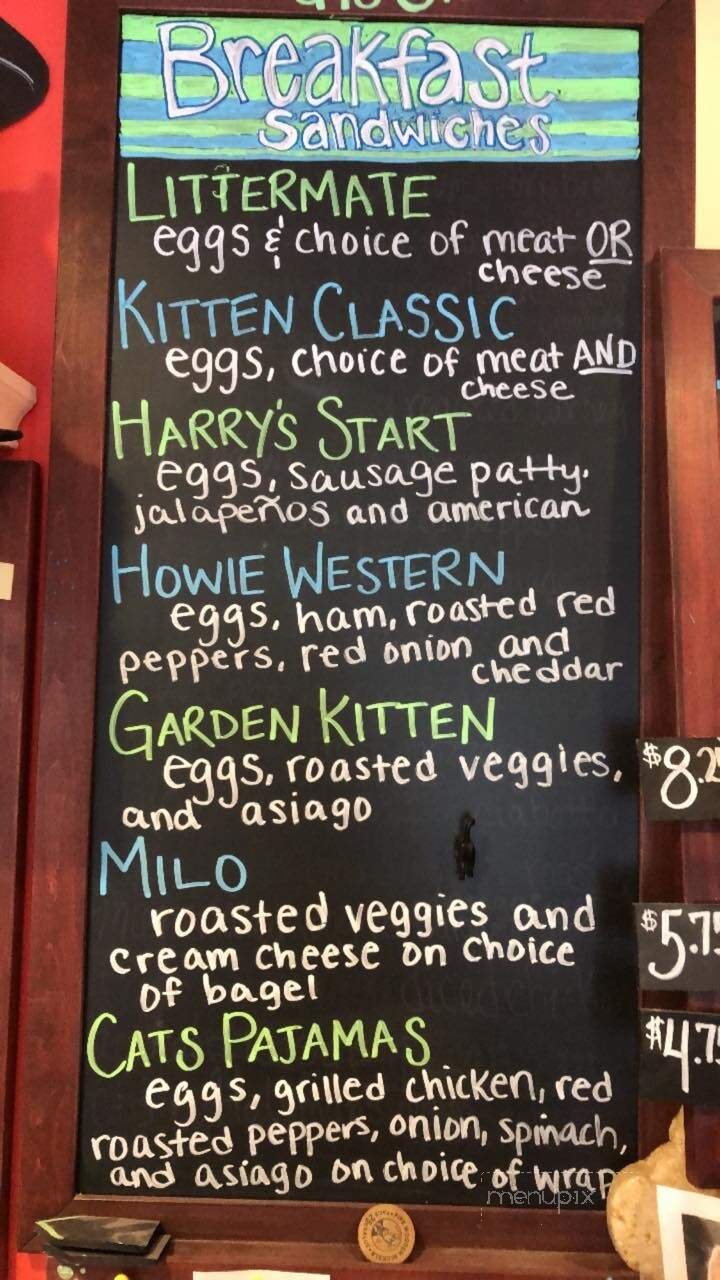 Breakfast
Sandwiches
LITTERMATE
eggs & choice of meat OR
cheese
KITTEN CLASSIC
eggs, choice of meat AND
cheese
HARRY'S START
eggs, sausage patty,
jalapeños and american
HOWIE WESTERN
eggs, ham, roasted red
peppers, red onion and
cheddar
GARDEN KITTEN
eggs, roasted veggies,
and asiago
MILO
roasted veggies and
cream cheese on choice
of bagel
CATS PAJAMAS
eggs, grilled chicken, red
roasted peppers, onion, spinach,
and asiago on choice of wrap
$8.2
$5.7
$4.7
menupix